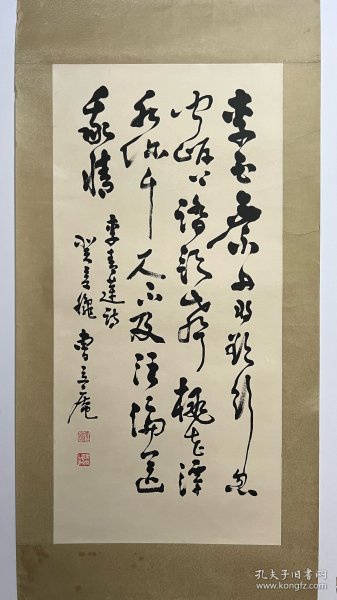 李白乘舟将欲行忽
聞岸上踏歌聲桃花潭
水深千尺不及汪倫送
我情
李青蓮詩
癸亥 曹立庵
孔夫子旧书网
www.kongfz.com